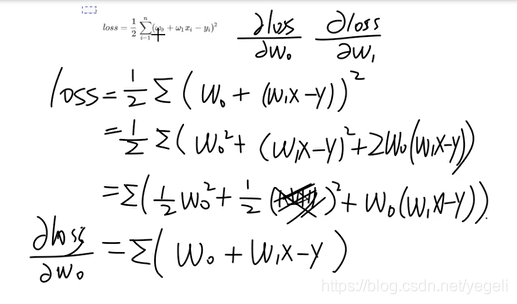 loss = \frac{1}{2} \sum_{i=1}^{n} (ω₀ + ω₁x_i − y_i)² ∂loss/∂w₀ ∂loss/∂w₁
loss = \frac{1}{2} Σ ( w₀ + (w₁x − y) )²
= \frac{1}{2} Σ ( w₀² + (w₁x − y)² + 2w₀(w₁x − y) )
= Σ ( \frac{1}{2} w₀² + \frac{1}{2} ( )² + w₀(w₁x − y) )
∂loss/∂w₀ = Σ ( w₀ + w₁x − y )
https://blog.csdn.net/yegeli